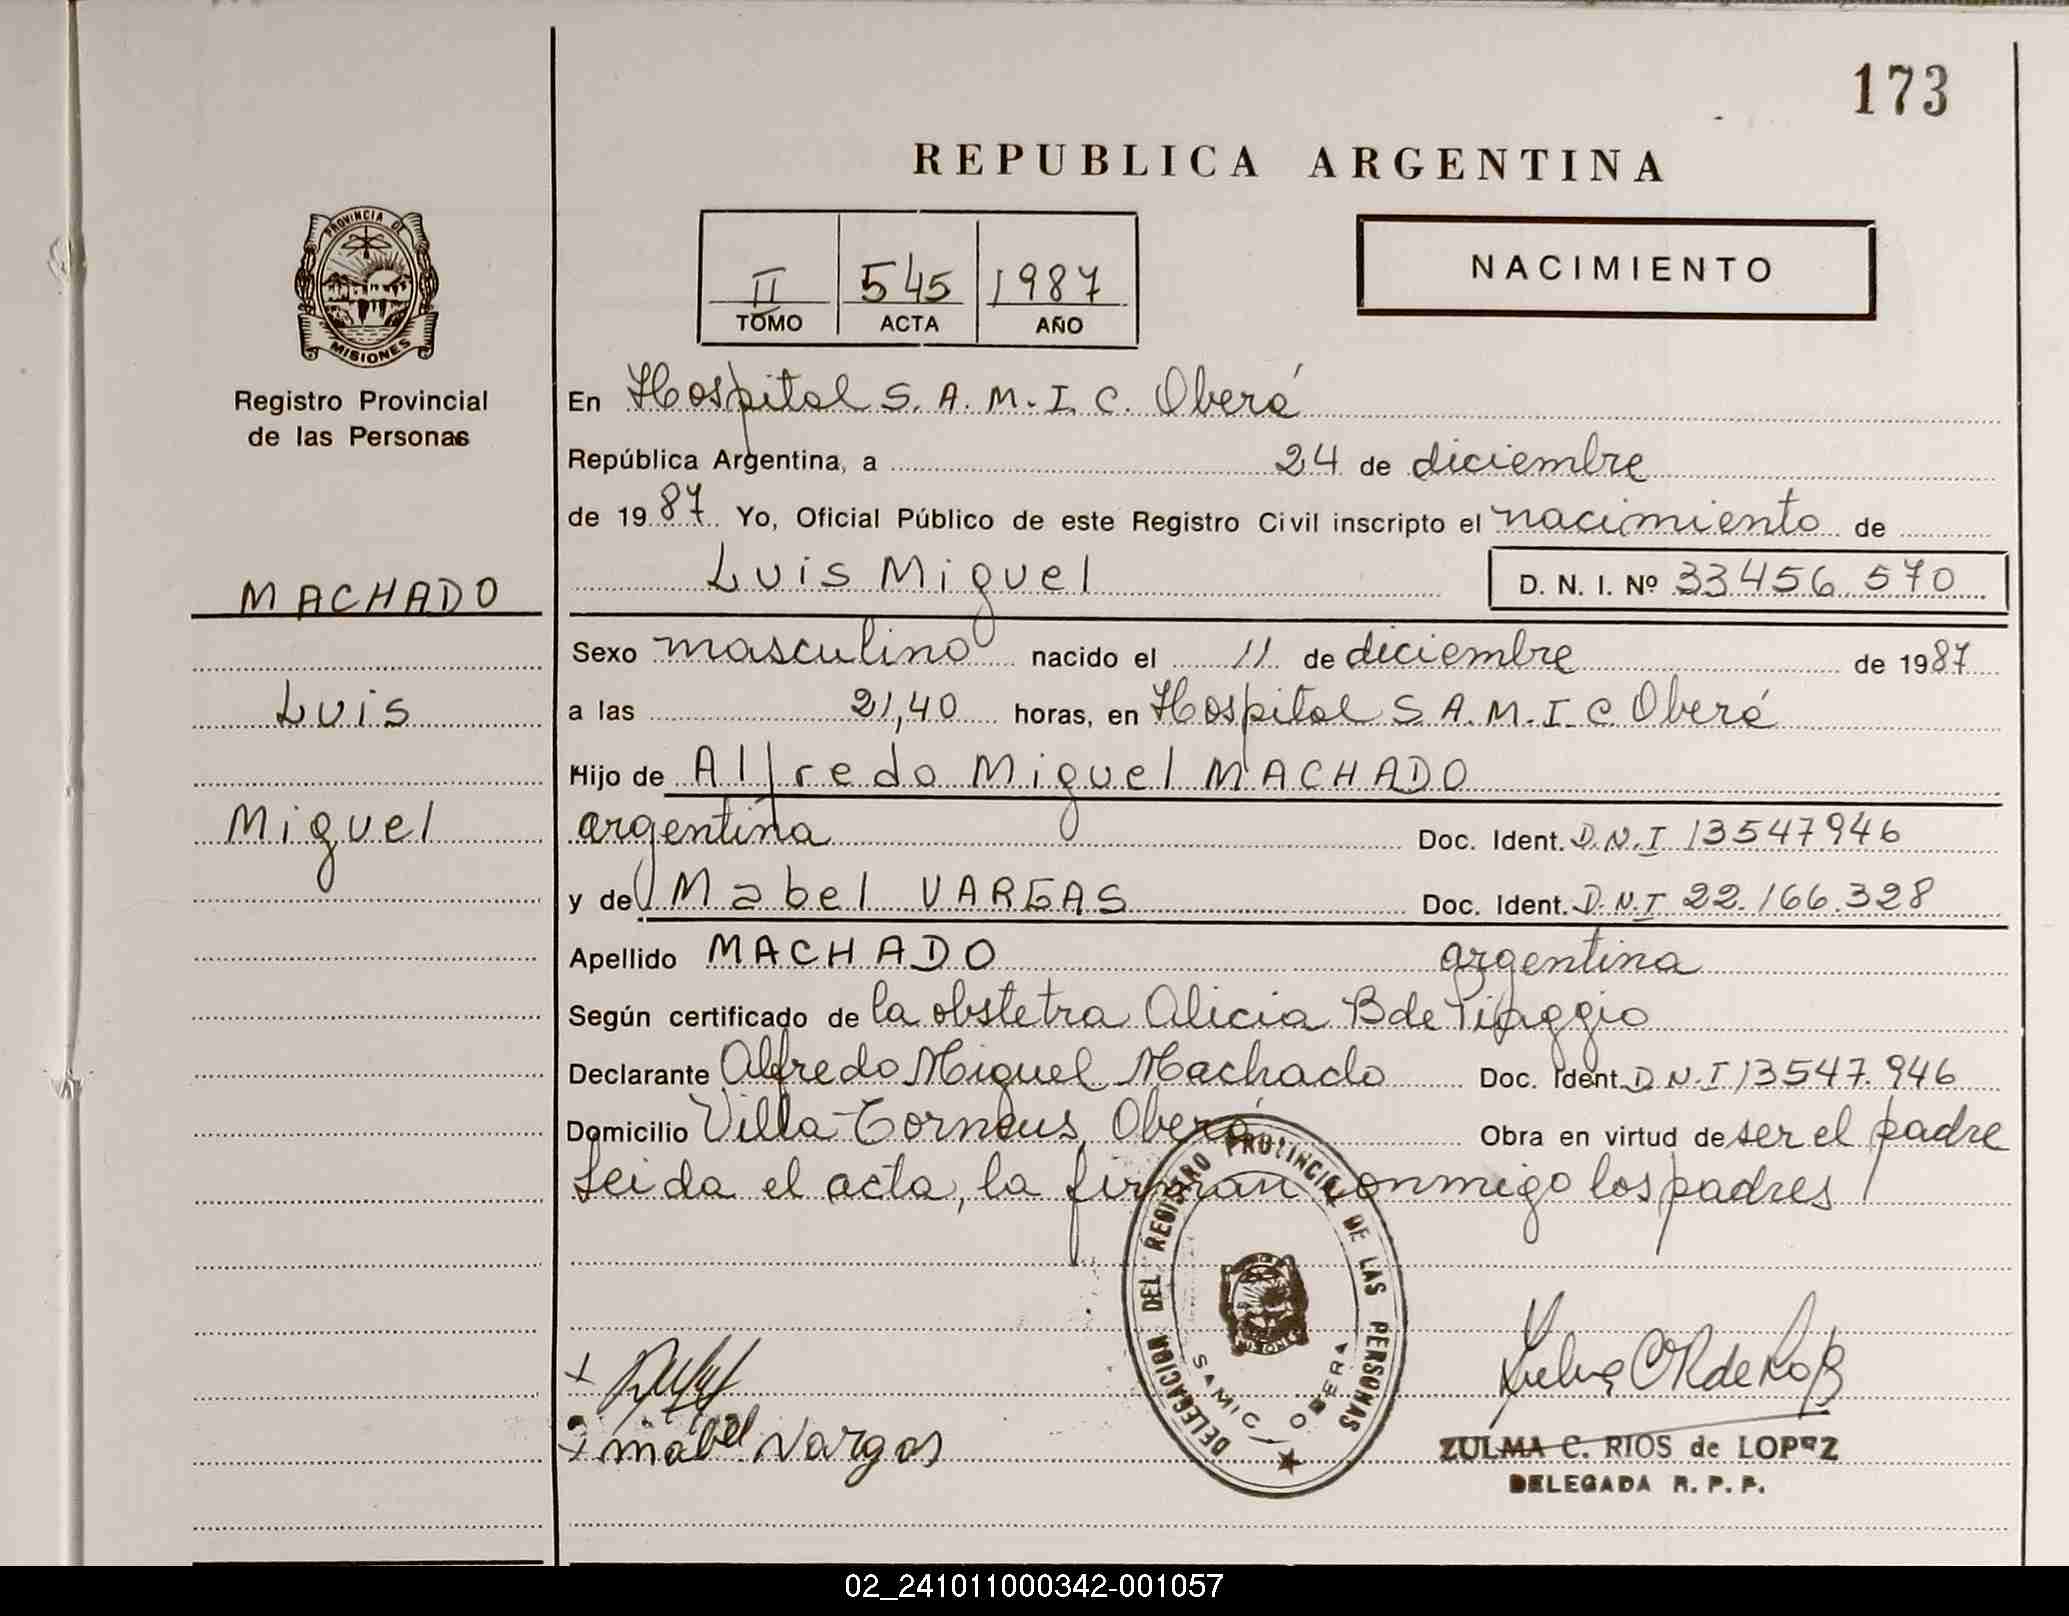 173
REPUBLICA ARGENTINA
PROVINCIA DE
MISIONES
Registro Provincial
de las Personas
II 545 1987
TOMO ACTA AÑO
NACIMIENTO
En Hospital S. A. M. I. C. Oberá
República Argentina, a 24 de diciembre
de 1987 Yo, Oficial Público de este Registro Civil inscripto el nacimiento de
Luis Miguel D. N. I. Nº 33456570
MACHADO
Sexo masculino nacido el 11 de diciembre de 1987
Luis
a las 21,40 horas, en Hospital S A. M. I. C. Oberá
Hijo de Alfredo Miguel MACHADO
Miguel
argentina Doc. Ident. D.N.I 13547946
y de Mabel VARGAS Doc. Ident. D.N.I 22.166.328
Apellido MACHADO argentina
Según certificado de la obstetra Alicia B de Piaggio
Declarante Alfredo Miguel Machado Doc. Ident. D N.I 13547.946
Domicilio Villa Oberá Obra en virtud de ser el padre
Leida el acta, la firman conmigo los padres
DELEGACION DEL REGISTRO PROVINCIAL DE LAS PERSONAS
SAMIC OBERA
Mabel Vargas
ZULMA C. RIOS de LOPEZ
DELEGADA R. P. P.
02_241011000342-001057